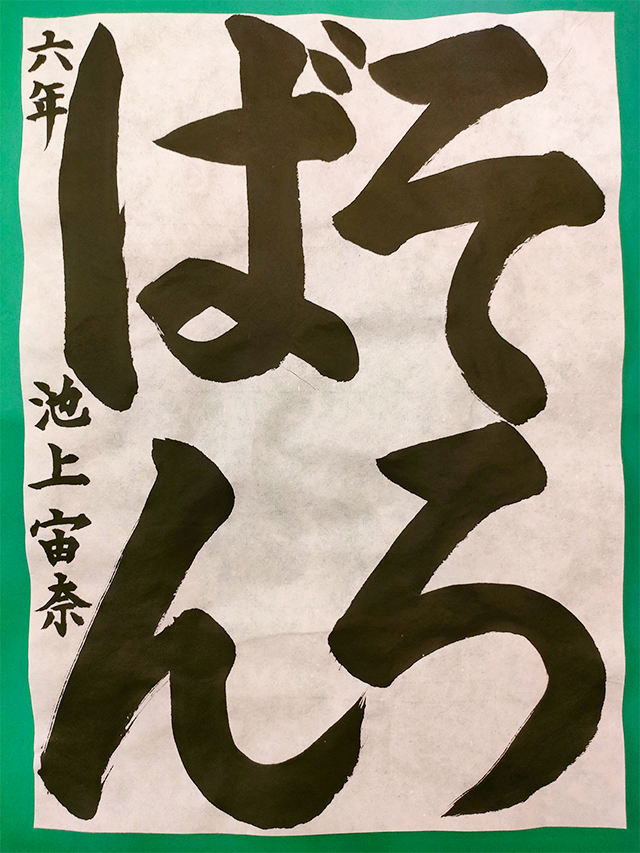 そろ
ばん
六年 池上宙奈